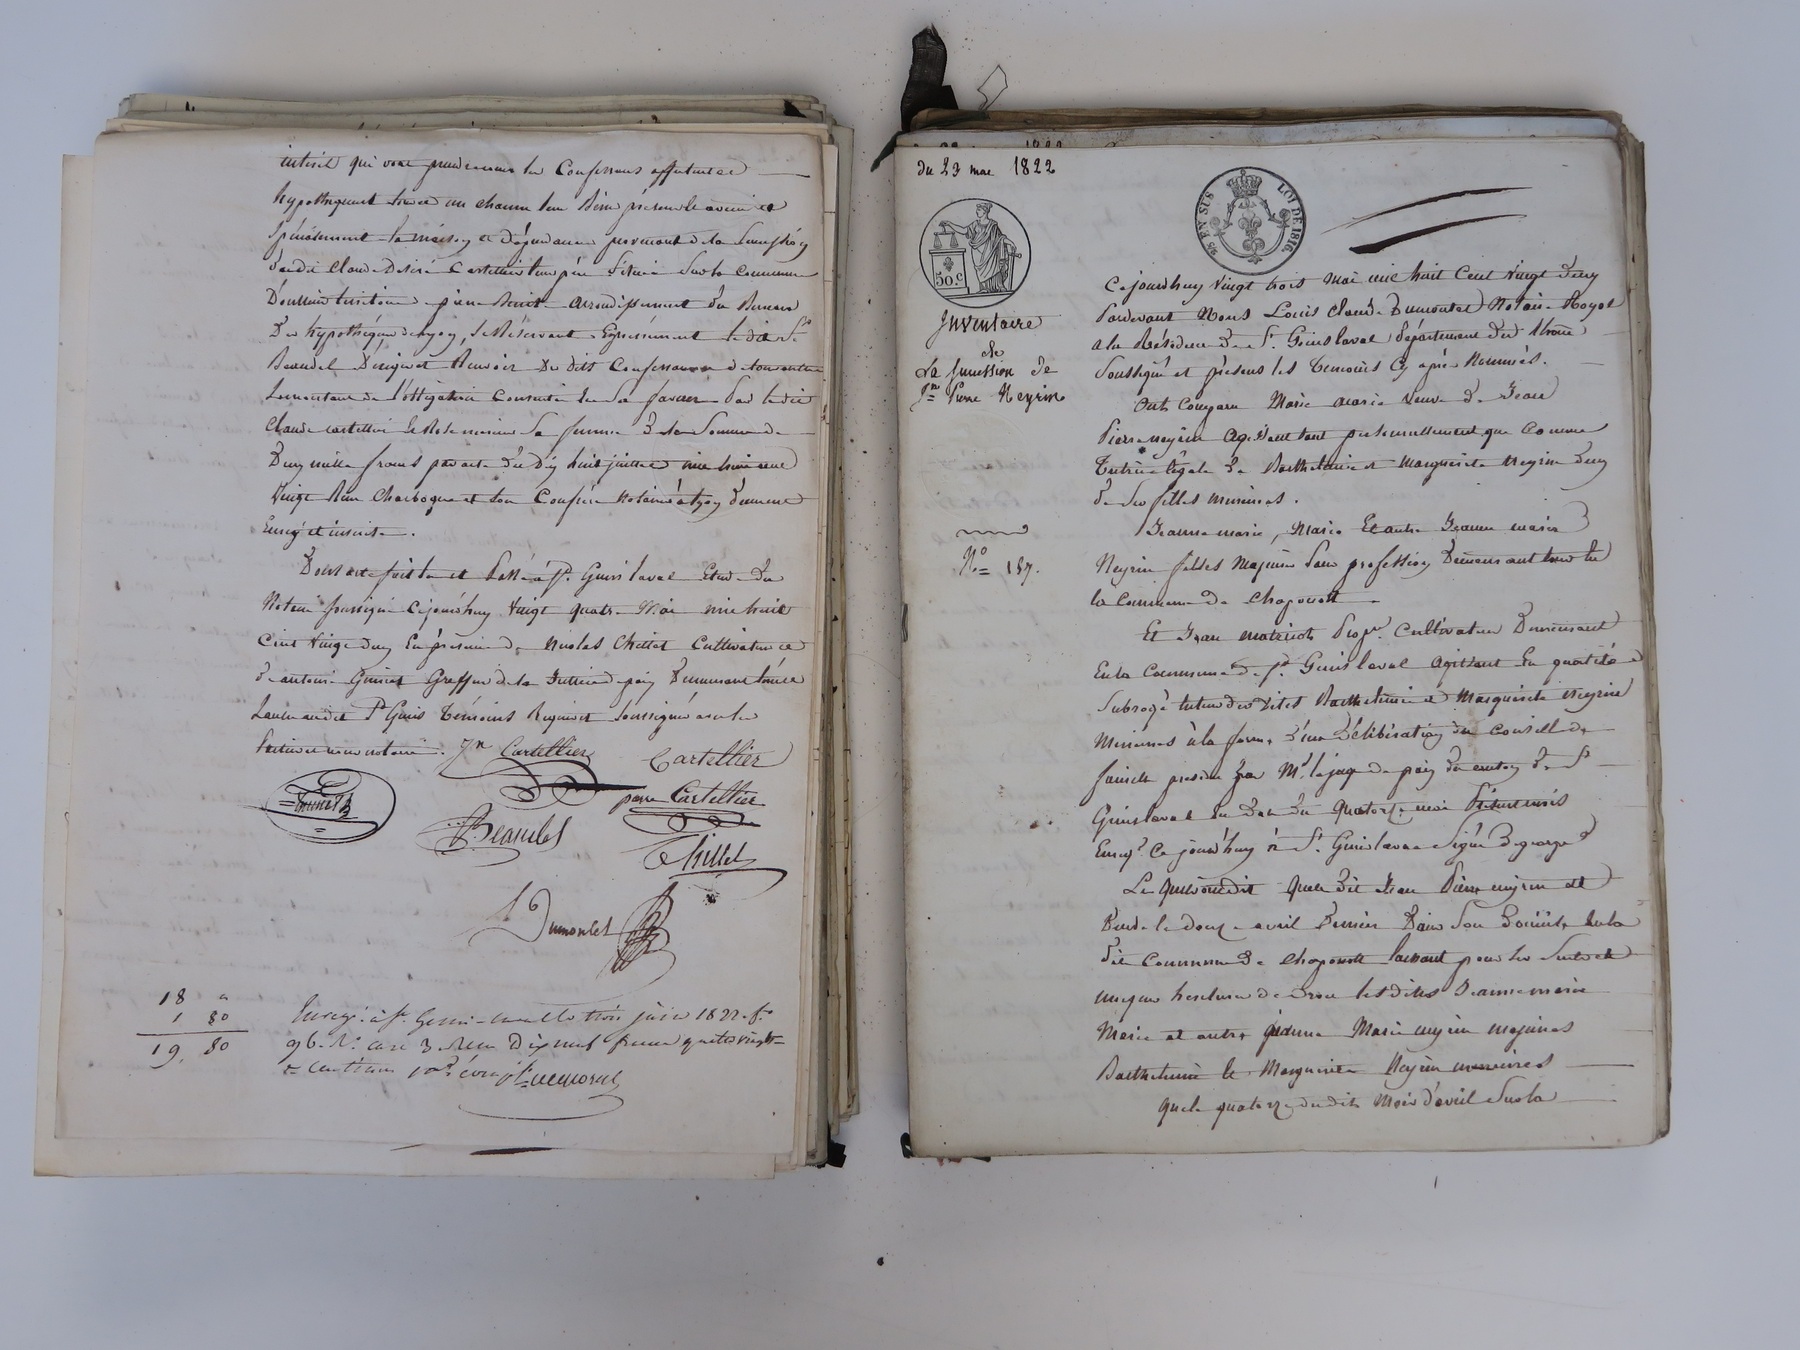 intérêt qui vont prendre les Confesseurs affectent et
hypothequent tous et un chacun leur Biens présents et avenir et
Spécialement la maison et dépendances provenant de la Succession
dudit Claude Desiré Cartellier leur père Situés Sur la commune
D'oullins territoire de pierre Benite arrondissement du Bureau
Des hypothéques de Lyon, Se Réservant Expressément ledit Sr.
Beaudet
Le montant de l'obligation Consentie En Sa faveur Par ledit
Claude Cartellier Sa femme De la Somme de
Deux mille francs par acte du Dix huit juillet mil huit cent
Vingt Reçu Charbogne et Son Confrère Notaires à Lyon Dument
Enreg. et inscrite.
Dont acte fait lu et Passé à St. Genis laval Etude du
Notaire soussigné Cejourd'huy Vingt quatre Mai mil huit
Cent Vingt deux En présence de Nicolas Chillet Cultivateur et
de antoine Greffier de la Justice de paix Demeurant tous à
St. Genis Témoins Requis et Soussignés avec les
Parties et nous notaire. Jn Cartellier Cartellier
pierre Cartellier
Beaudet
Chillet
Dumontet
18 "
1 80
19. 80
Enregé. à St. Genis-laval le trois juin 1822. f.
96. Vo. case 3 Reçu Dix neuf francs quatre vingt
Centimes
du 23 mai 1822
50 c
25 EN SUS
LOI DE 1816
Inventaire
de
La Succession de
Jn. Pierre Neyrin
No. 187.
Cejourd'huy Vingt trois Mai mil huit Cent Vingt Deux
Pardevant Nous Louis Claude Dumontet Notaire Royal
à la Résidence De St. Genis laval Département du Rhône
Soussigné et présens les Temoins Cy après Nommés.
Ont Comparu Marie Veuve de Jean
Pierre neyrin agissant tant personnellement que Comme
Tutrice légale De Barthelemie et Marguerite Neyrin Deux
de Ses filles mineures.
Jeanne marie, Marie Et autre Jeanne marie
Neyrin filles Majeures Sans profession Demeurant tous En
la Commune de Chaponost
Et Jean Propre. Cultivateur Demeurant
En la Commune de St. Genis laval agissant En qualité de
Subrogé tuteur des Dites Barthelemie et Marguerite Neyrin
Mineures à la forme D'une Délibération du Conseil de
famille présidé par Mr. le juge de paix du canton de St.
Genis laval En Date Du Quatorze mai
Enreg. Ce jourd'huy à St. Genis laval Signé Degeorge
Lesquels ont dit que ledit Jean Pierre neyrin est
Décédé le douze avril Dernier Dans Son Domicile En la
dite Commune de Chaponost laissant pour Ses Seules et
uniques héritieres de Droit lesdites Jeanne marie
Marie et autre jeanne Marie neyrin majeures
Barthelemie et Marguerite Neyrin mineures
Que le quatorze du dit Mois d'avril Sur la